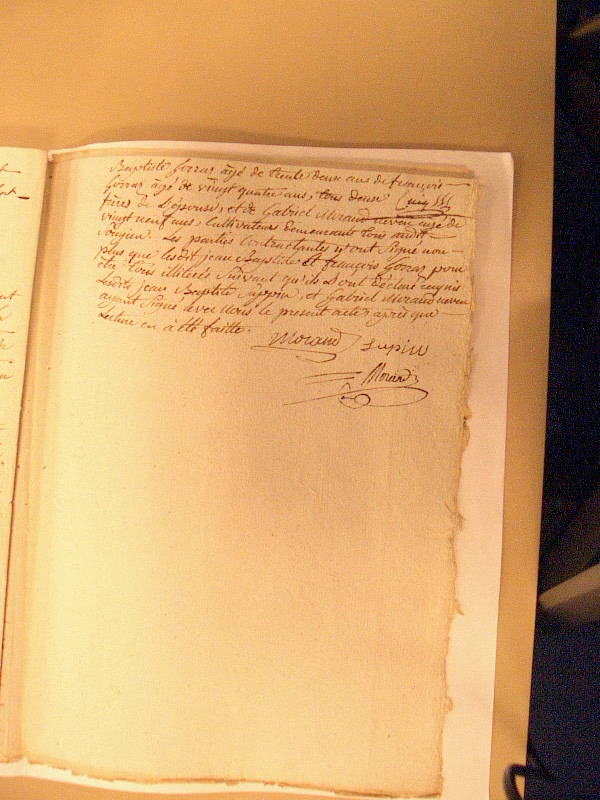 Baptiste Gorras âgé de trente deux ans de françois
Gorras âgé de vingt quatre ans, tous deux
frères de L'épouse, et de Gabriel Morand neveu agé de
vingt neuf ans, Cultivateurs demeurant tous audit
Les parties Contractantes n'ont Signé non
plus que lesdit jean Baptiste et françois Gorras pour
etre tous illiterés Suivant qu'ils L'ont Déclaré requis
Lesdits jean Baptiste Suppin, et Gabriel Morand neveu
ayant Signé avec Nous le present acte, après que
Lecture en à été faitte.
Morand Supin
Morand